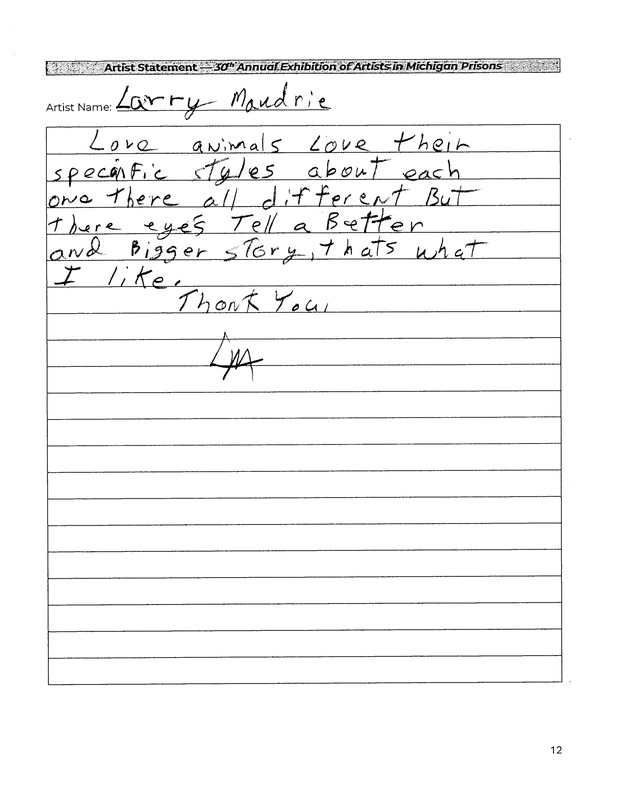 Artist Statement — 30th Annual Exhibition of Artists in Michigan Prisons
Artist Name: Larry Maudrie
Love animals Love their
specinific styles about each
one there all different But
there eye's Tell a Better
and Bigger story, thats what
I like.
Thank You,
LM
12